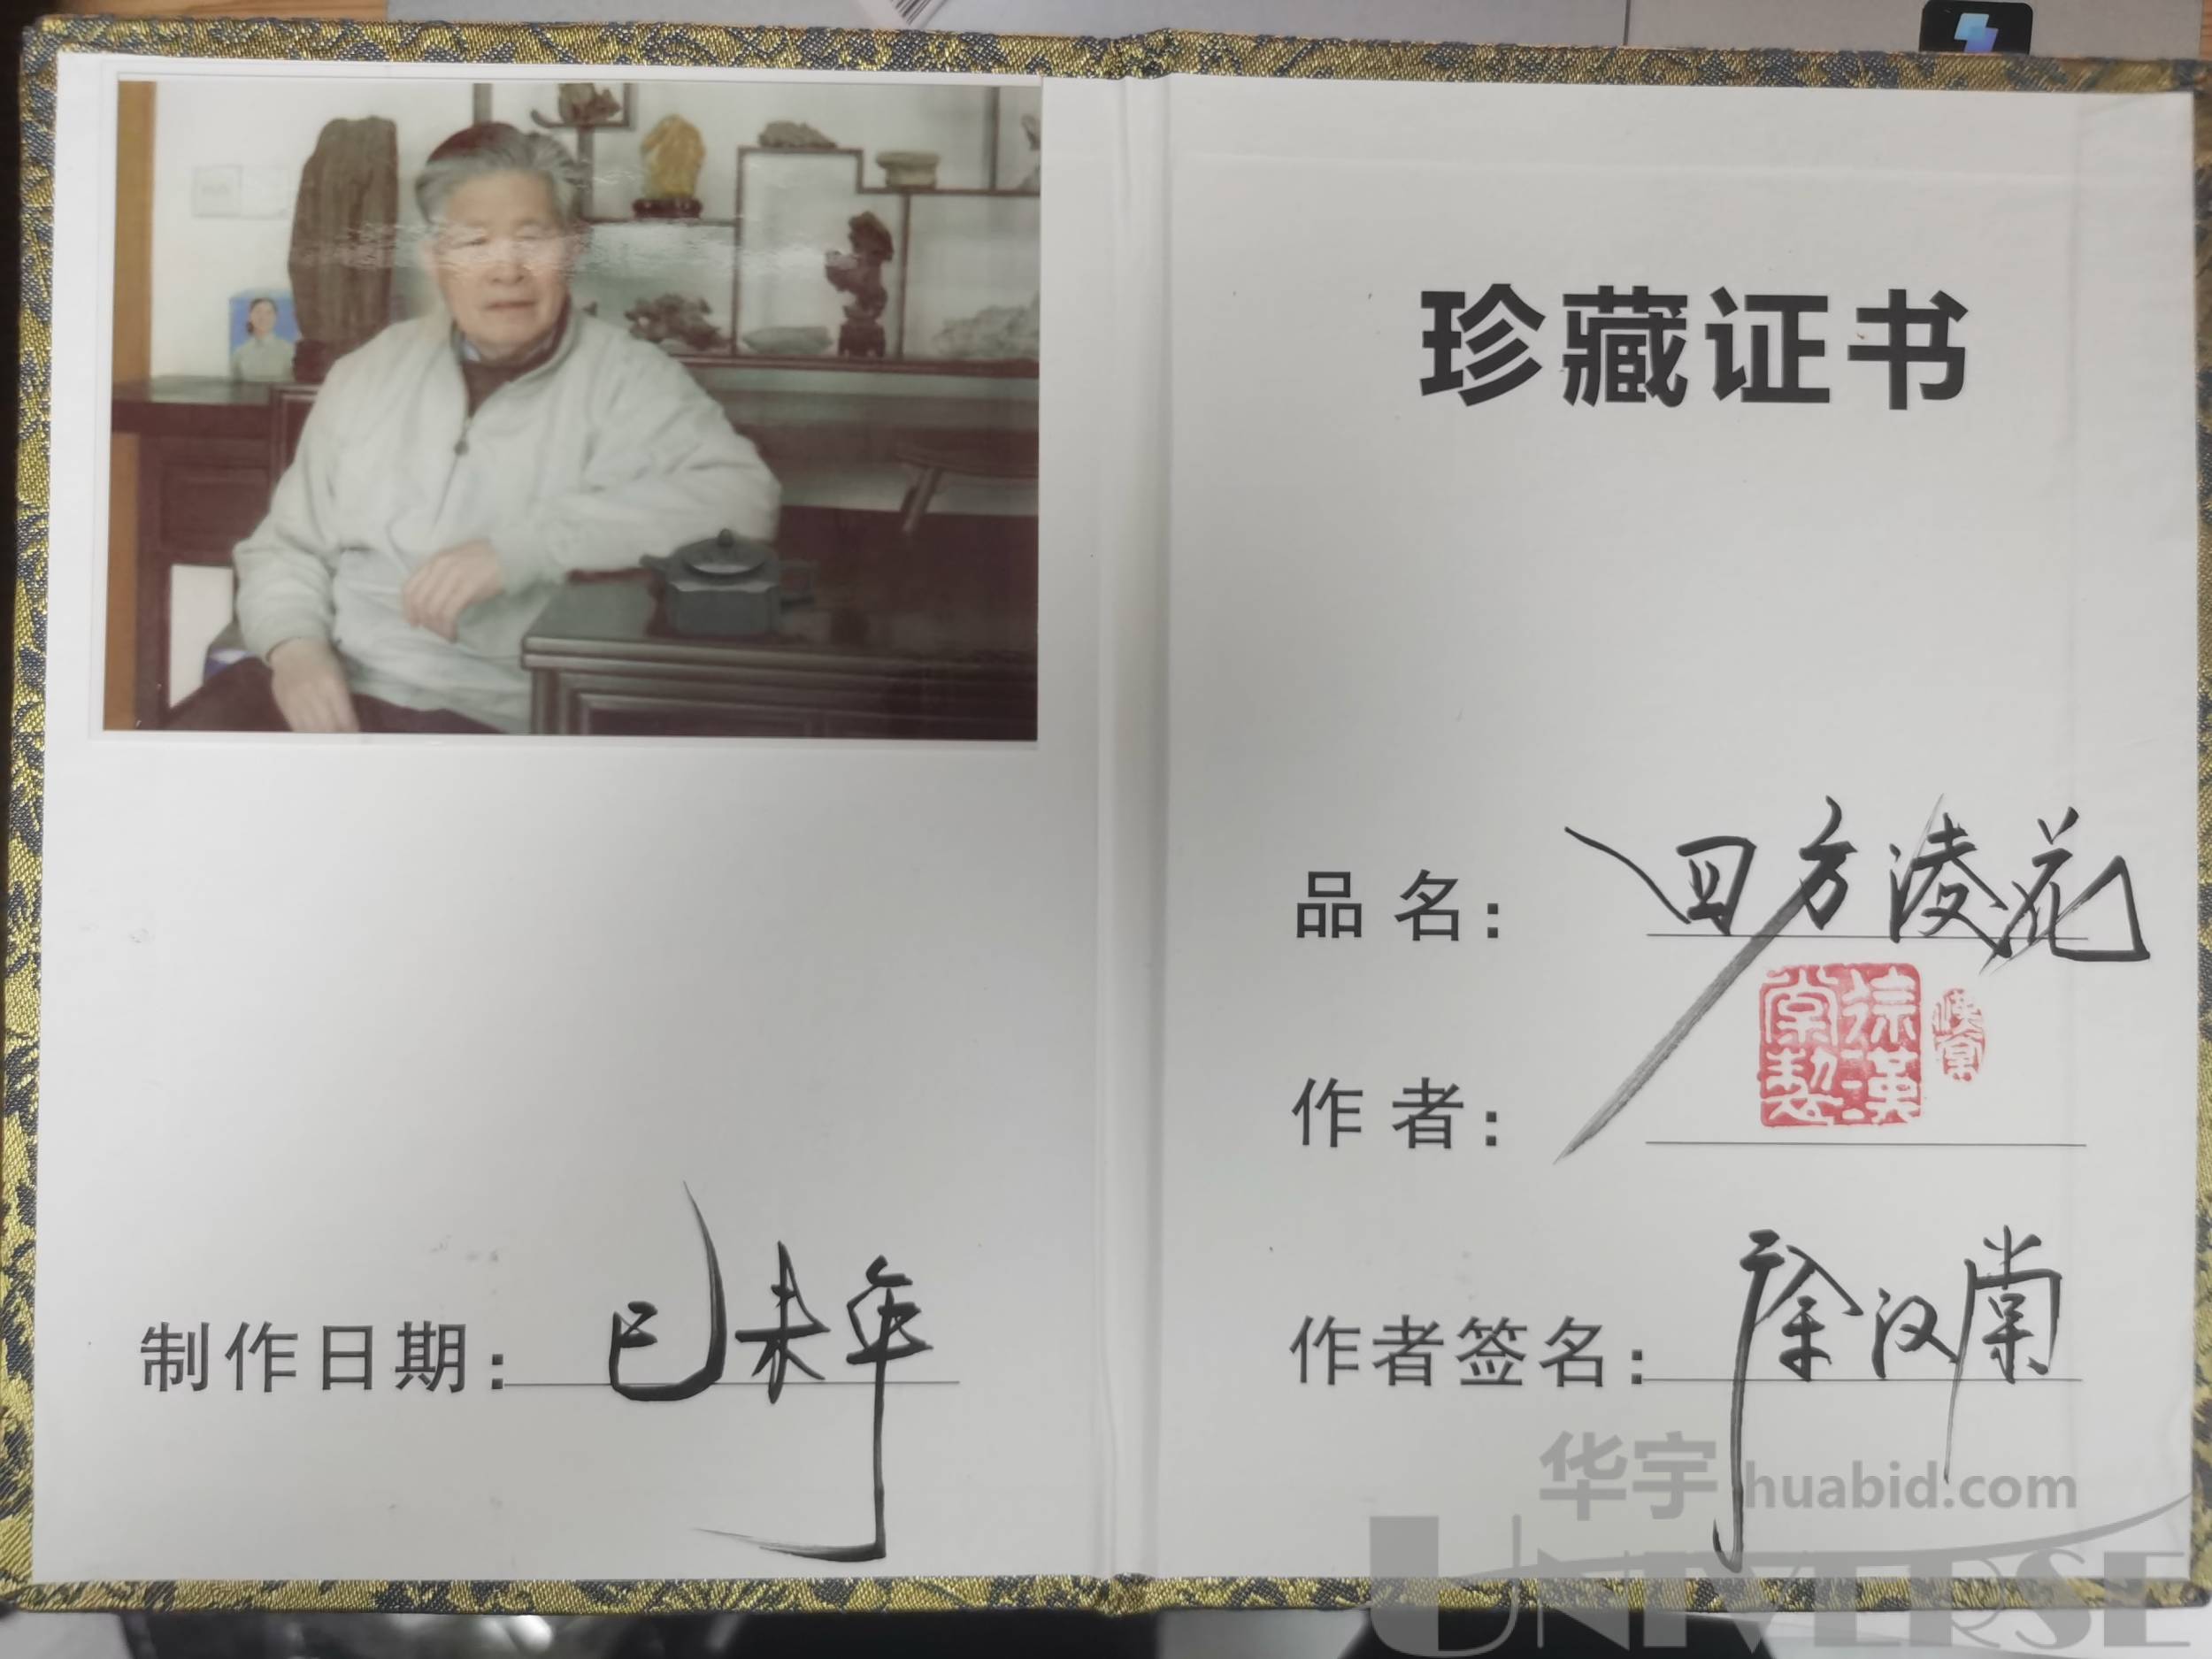 珍藏证书
品名：四方淩花
作者：
徐漢棠製
漢棠
作者签名：徐汉棠
制作日期：己未年
华宇 huabid.com
UNIVERSE